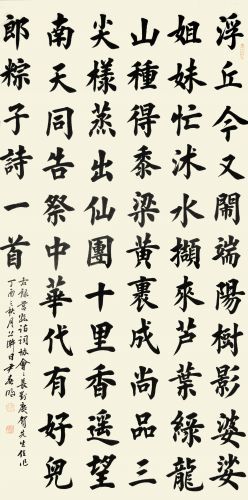 浮丘今又鬧端陽樹影婆娑
姐妹忙沐水擷來芦葉綠龍
山種得黍梁黄裹成尚品三
尖樣蒸出仙團十里香遥望
南天同告祭中華代有好兒
郎粽子詩一首
右録诗詞協會會長劉庚賀先生佳作
丁酉之秋月上澣日尹